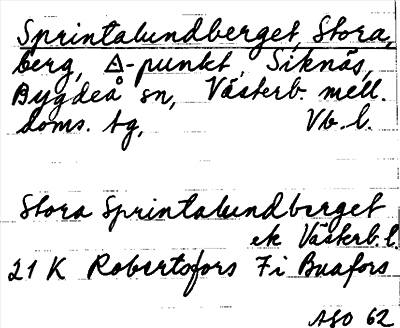 Sprintalundberget, Stora,
berg, △-punkt, Siknäs,
Bygdeå sn, Västerb. mell.
doms. tg, Vb. l.
Stora Sprintalundberget
ek Västerb. l.
21 K Robertsfors 7 i Buafors
ASO 62